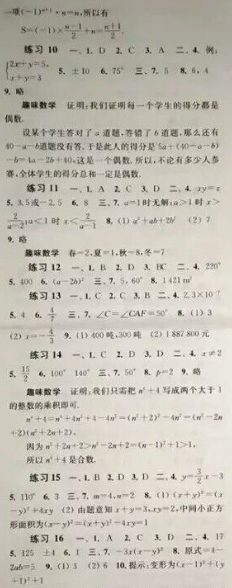 S=(-1)× (n-1)/2 +n= (n+1)/2.
练习 10 一、1. D 2. C 3. A 二、4. 例:
{2x+y=5, x+y=3 5. ±10 6. 75° 三、7. 5 8. 6,4
9. 略
趣味数学 证明:我们证明每一个学生的得分都是
偶数.
设某个学生答对了 a 道题,答错了 b 道题,那么还有
40-a-b道题没有答.于是此人的得分是 5a+(40-a-b)
-b=4a-2b+40,这是一个偶数.所以,不论有多少人参
赛,全体学生的得分总和一定是偶数.
练习 11 一、1. A 2. C 3. D 二、4. xy=z
5. 3.5或-2.5 6. 8 三、7. a=1时无解;a>1时 x>
2/(a-1);a<1 时 x< 2/(a-1) 8. (1) a²+ab+2b² (2) 7
9. 略
趣味数学 春=2,夏=1,秋=8,冬=7
练习 12 一、1. B 2. D 3. BC 二、4. 220°
5. 400 6. (a-2b)² 三、7. 5,60° 8. 1421 m²
练习 13 一、1. C 2. C 3. B 二、4. 2.3×10⁻⁷
5. 4 6. 4/7 三、7. ∠C=∠CAF=50° 8. (1) 3
(2) x=-4/3 9. (1) 400吨,300吨 (2) 1 887 800元
练习 14 一、1. C 2. D 3. D 二、4. x≠2
5. 15/2 6. 100° 140° 三、7. 50° 8. 略
趣味数学 证明:我们只需把 n⁴+4 写成两个大于 1
的整数的乘积即可.
n⁴+4=n⁴+4n²+4-4n²=(n²+2)²-4n²=(n²-2n
+2)(n²+2n+2),
因为 n²+2n+2>n²-2n+2=(n-1)²+1>1,
所以 n⁴+4 是合数.
练习 15 一、1. B 2. D 3. D 二、4. y=3/2x-3
5. 110° 6. 3 三、7. m=4,n=2 8. (1) (x+y)²=(x
-y)²+4xy (2) 由题意知 x+y=3,xy=2,中间小正方
形面积为(x-y)²=(x+y)²-4xy=1
练习 16 一、1. A 2. C 3. D 二、4. 17
5. 125 ±4 6. 1 三、7. -3x(x-y)² 8. 原式=4-
2ab=5 9. (1) 3 (2) 6 10. 提示:变形为(x-1)²+(y
+1)²+1